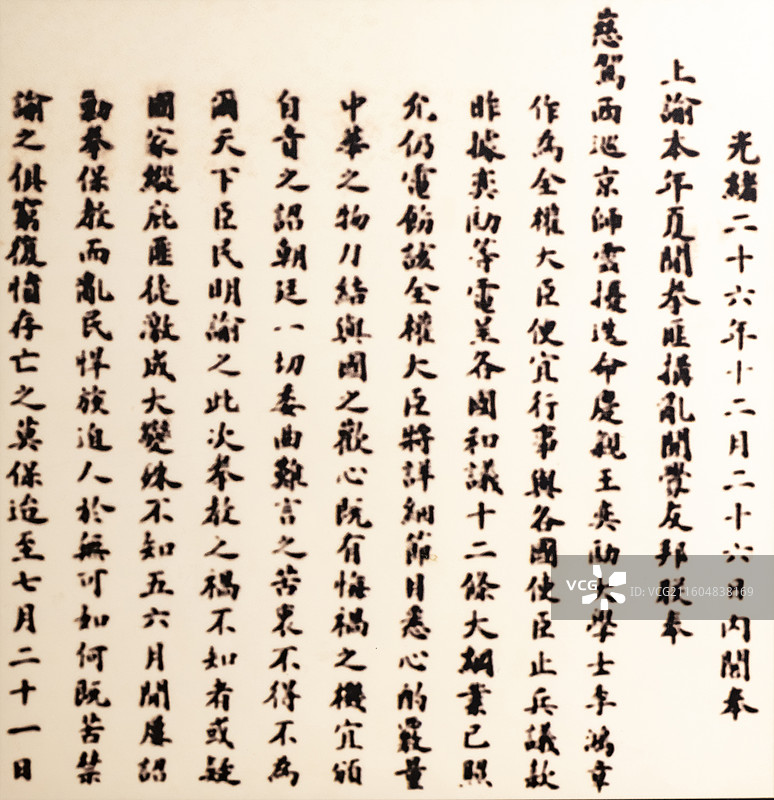 光緒二十六年十二月二十六日內閣奉
上諭本年夏間拳匪搆亂開釁友邦朕奉
慈駕西巡京師雲擾迭命慶親王奕劻大學士李鴻章
作為全權大臣便宜行事與各國使臣止兵議款
昨據奕劻等電呈各國和議十二條大綱業已照
允仍電飭該全權大臣將詳細節目悉心酌覈量
中華之物力結與國之歡心既有悔禍之機宜頒
自責之詔朝廷一切委曲難言之苦衷不得不為
爾天下臣民明諭之此次拳教之禍不知者或疑
國家縱庇匪徒激成大變殊不知五六月間屢詔
勦拳保教而亂民悍族迫人於無可如何既苦禁
諭之俱窮復憤存亡之莫保迨至七月二十一日
VCG
ID: VCG211604838169